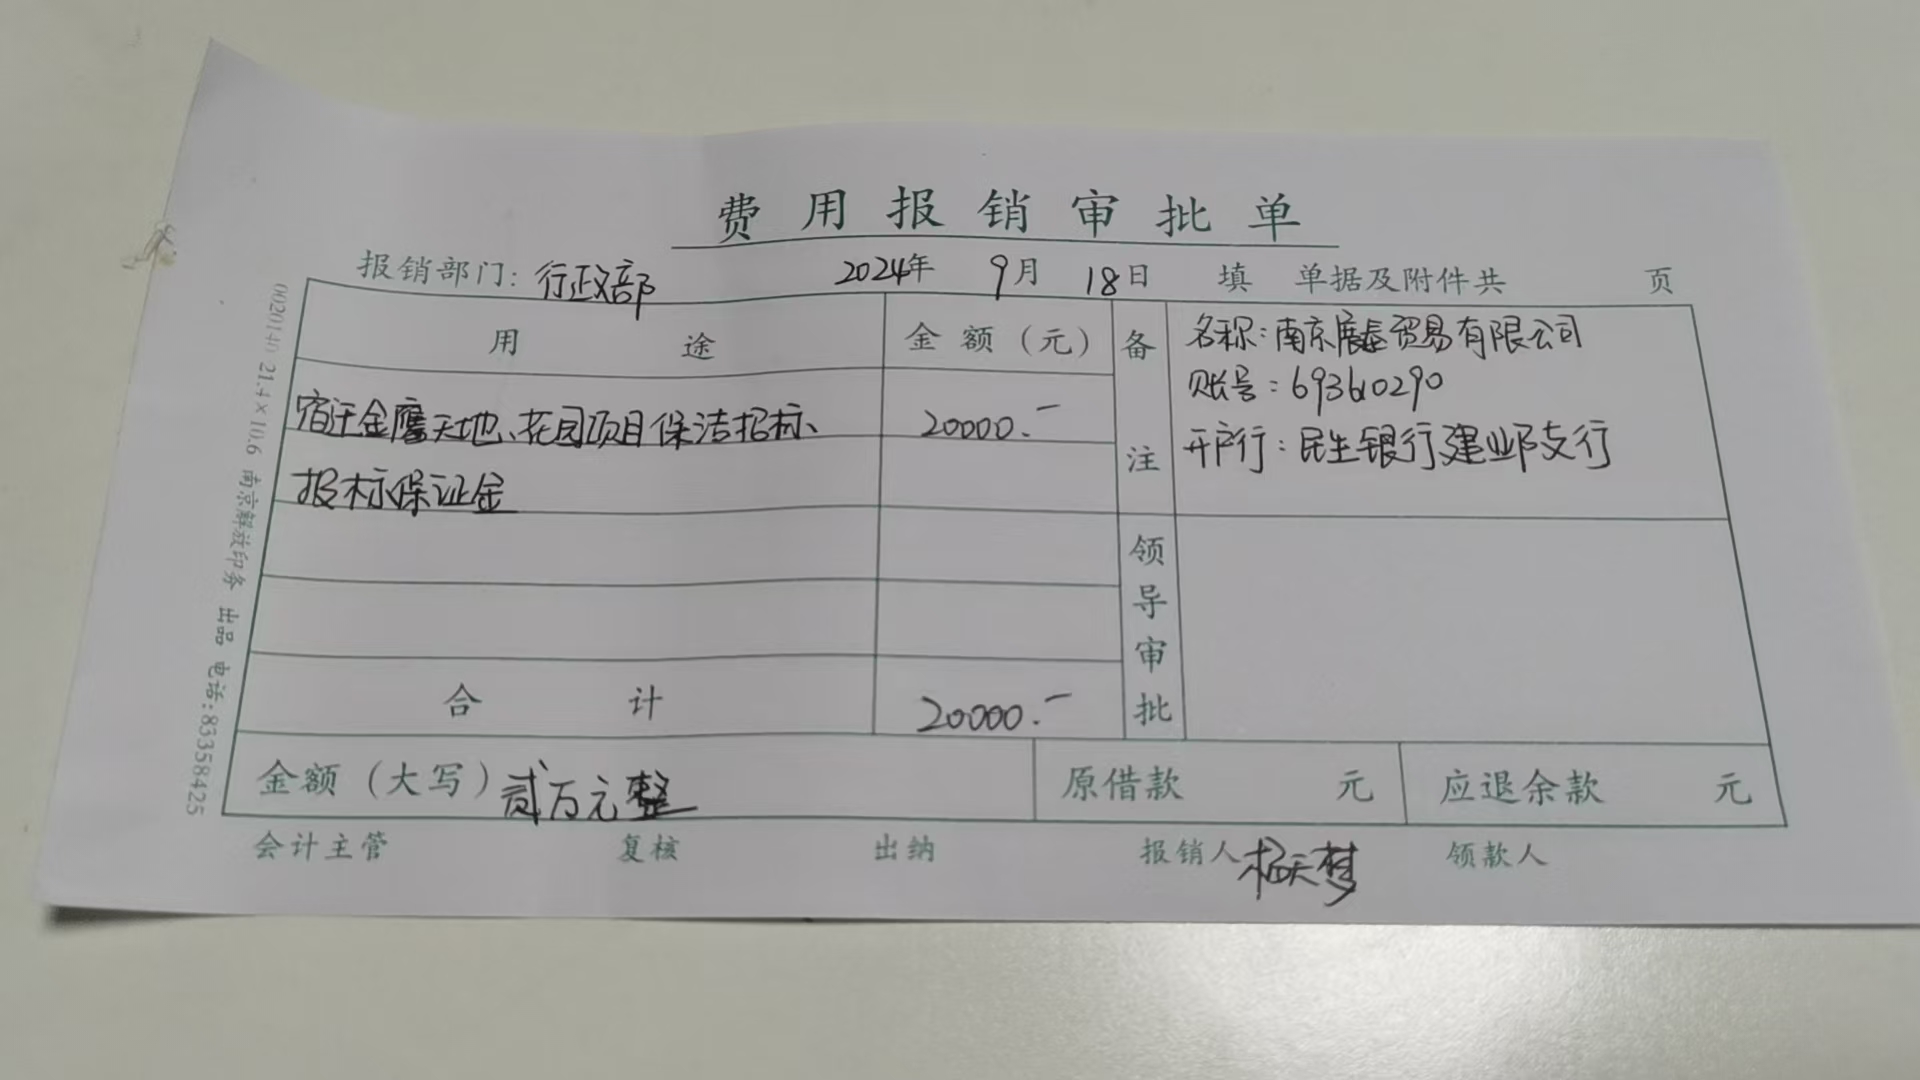 费用报销审批单
报销部门：行政部 2024年 9月 18日 填 单据及附件共 页
用途 金额（元） 备注 名称：南京展泰贸易有限公司
账号：693610290
开户行：民生银行建邺支行
宿迁金鹰天地、花园项目保洁招标、 20000.-
投标保证金
领导审批
合计 20000.-
金额（大写）贰万元整 原借款 元 应退余款 元
会计主管 复核 出纳 报销人 杨天梦 领款人
002014# 21.4×10.6 南京解放印务 出品 电话：83358425